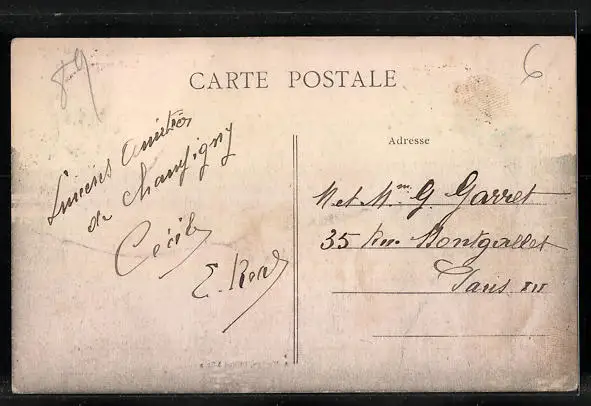 89
6
CARTE POSTALE
Sincères Amitiés
de Champigny
Cécile
E.
Adresse
M et Mme G. Garret
35 Rue Montgallet
Paris XII